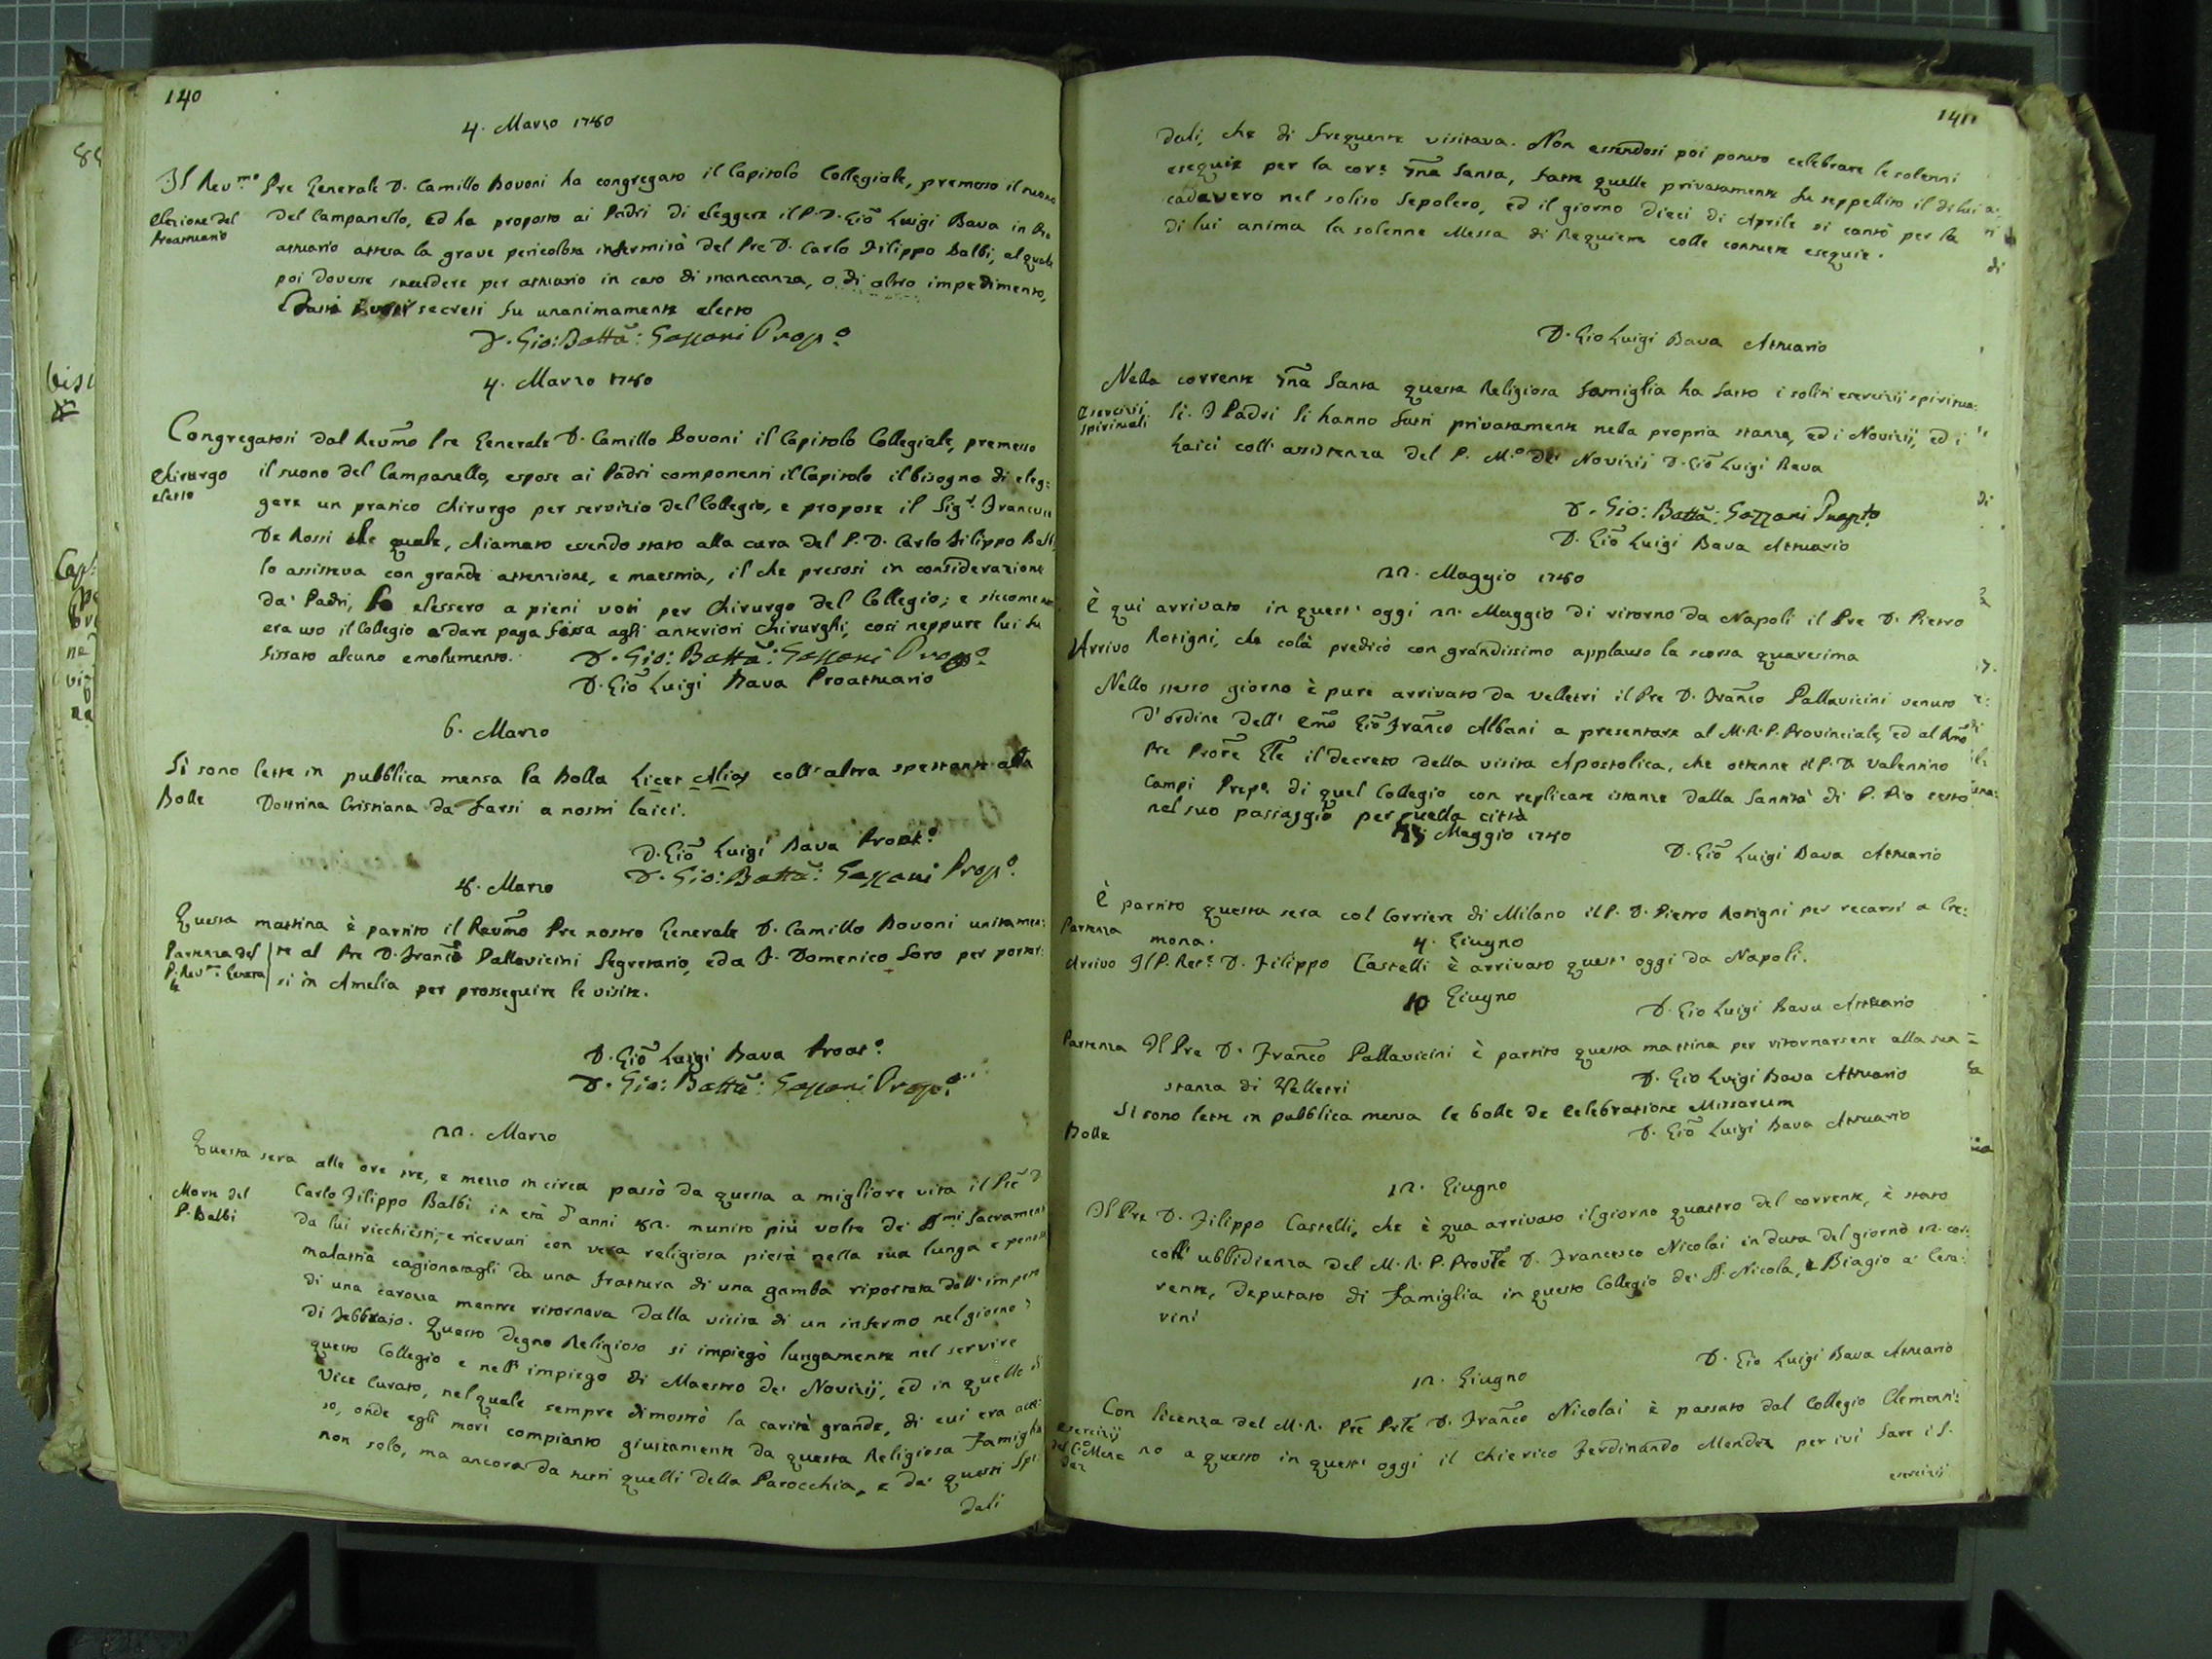 140
4. Marzo 1780
Il Rev.mo Pre Generale D. Camillo Bovoni ha congregato il Capitolo Collegiale, premesso il suono
Elezione del
Proattuario
del Campanello, ed ha proposto ai Padri di eleggere il P. D. Gio Luigi Bava in Pro
attuario attesa la grave pericolosa infermità del Pre D. Carlo Filippo Balbi, al quale
poi dovesse succedere per attuario in caso di mancanza, o di altro impedimento,
e secreti fu unanimamente eletto
D. Gio: Batta: Gozzani Prop.o
4. Marzo 1780
Congregatosi dal Reumo Pre Generale D. Camillo Bovoni il Capitolo Collegiale, premesso
Chirurgo
eletto
il suono del Campanello, espose ai Padri componenti il Capitolo il bisogno di eleg:
gere un pratico chirurgo per servizio del Collegio, e propose il Sig.r Francesco
De Rossi il quale, chiamato essendo stato alla cura del P. D. Carlo Filippo Balbi,
lo assisteva con grande attenzione, e maestria, il che presosi in considerazione
da' Padri, lo elessero a pieni voti per chirurgo del Collegio; e siccome non
era uso il Collegio a dare paga fissa agli anteriori chirurghi, così neppure lui fu
fissato alcuno emolumento.
D. Gio: Batta: Gozzani Prop.o
D. Gio Luigi Bava Proattuario
6. Marzo
Si sono lette in pubblica mensa la Bolla Licet Alias coll'altra spettante alla
Bolle
Dottrina Cristiana da farsi a nostri laici.
D. Gio Luigi Bava Proatt.o
D. Gio: Batta: Gozzani Prop.o
8. Marzo
Questa mattina è partito il Reumo Pre nostro Generale D. Camillo Bovoni unitamen:
Partenza del
P. Rev.mo Genera
le
te al Pre D. Franco Pallavicini Segretario, e da F. Domenico Soro per portar:
si in Amelia per prosseguire le visite.
D. Gio Luigi Bava Proat.o
D. Gio: Batta: Gozzani Prop.o
22. Marzo
Questa sera alle ore tre, e mezzo in circa passò da questa a migliore vita il Pre D
Morte del
P. Balbi
Carlo Filippo Balbi in età d'anni 82. munito più volte de' SSmi Sacramenti
da lui ricchiesti, e ricevuti con vera religiosa pietà nella sua lunga e penosa
malattia cagionatagli da una frattura di una gamba riportata dall'impeto
di una carozza mentre ritornava dalla visita di un infermo nel giorno
di Febbraio. Questo degno Religioso si impiegò lungamente nel servire
questo Collegio e nell'impiego di Maestro de' Novizij, ed in quello di
Vice Curato, nel quale sempre dimostrò la carità grande, di cui era acce:
so, onde egli morì compianto giustamente da questa Religiosa Famiglia
non solo, ma ancora da tutti quelli della Parocchia, e da' questi Spe
dali
141
dali, che di frequente visitava. Non essendosi poi potuto celebrare le solenni
esequie per la cor.e 7na Santa, fatte quelle privatamente fu seppellito il di lui
cadavero nel solito Sepolcro, ed il giorno dieci di Aprile si cantò per la
di lui anima la solenne Messa di Requiem colle consuete esequie.
D. Gio Luigi Bava Attuario
Nella corrente 7na Santa questa Religiosa famiglia ha fatto i soliti esercizij spiritua:
Esercizij
spirituali
li. I Padri li hanno fatti privatamente nella propria stanza, ed i Novizij, ed i
Laici coll'assistenza del P. M.o dei Novizij D. Gio Luigi Bava
D. Gio: Batta: Gozzani Prep.to
D. Gio Luigi Bava Attuario
22. Maggio 1780
È qui arrivato in quest'oggi 22. Maggio di ritorno da Napoli il Pre D. Pietro
Arrivo
Rotigni, che colà predicò con grandissimo applauso la scorsa quaresima
Nello stesso giorno è pure arrivato da Velletri il Pre D. Franco Pallavicini venuto
d'ordine dell'Emo Gio Franco Albani a presentare al M. R. P. Provinciale, ed al Rmo
Pre Prore Gle il decreto della visita Apostolica, che ottenne il P. D. Valentino
Campi Prep.o di quel Collegio con replicate istanze dalla Santità di P. Pio sesto
nel suo passaggio per quella città
Maggio 1780
D. Gio Luigi Bava Attuario
È partito questa sera col Corriere di Milano il P. D. Pietro Rotigni per recarsi a Cre:
Partenza
mona.
4. Giugno
Arrivo
Il P. Ret.e D. Filippo Castelli è arrivato quest'oggi da Napoli.
10 Giugno
D. Gio Luigi Bava Attuario
Partenza
Il Pre D. Franco Pallavicini è partito questa mattina per ritornarsene alla sua
stanza di Velletri
D. Gio Luigi Bava Attuario
Si sono lette in pubblica mensa le bolle de Celebratione Missarum
Bolle
D. Gio Luigi Bava Attuario
12. Giugno
Il Pre D. Filippo Castelli, che è qua arrivato il giorno quattro del corrente, è stato
coll'ubbidienza del M. R. P. Provle D. Francesco Nicolai in data del giorno 12. cor:
rente, deputato di Famiglia in questo Collegio de' SS. Nicola, e Biagio a' Cesa:
rini
D. Gio Luigi Bava Attuario
12. Giugno
Con licenza del M. R. Pre Prle D. Franco Nicolai è passato dal Collegio Clementi:
Esercizij
del C.o Mene
dez
no a questo in quest'oggi il chierico Ferdinando Mendez per ivi fare i S.
esercizij